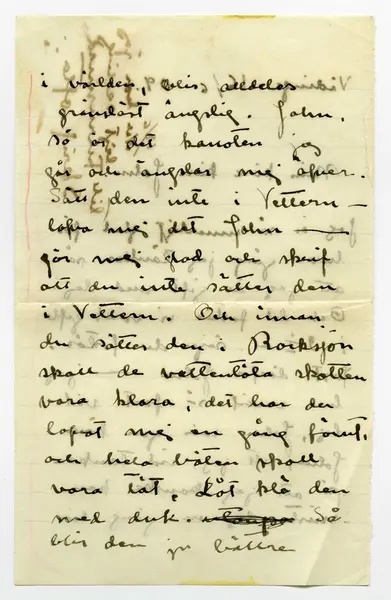 i världen, blir alldeles
gränslöst ängslig. John,
så är det kanoten jag
går och ängslas mej över.
Sätt den inte i Vettern —
lova mej det John —
gör mej glad och skrif
att du inte sätter den
i Vettern. Och innan
du sätter den i Rocksjön
skall de vattentäta skotten
vara klara, det har du
lovat mej en gång förut,
och hela båten skall
vara tät, Låt klä den
med duk. Så
blir den ju bättre